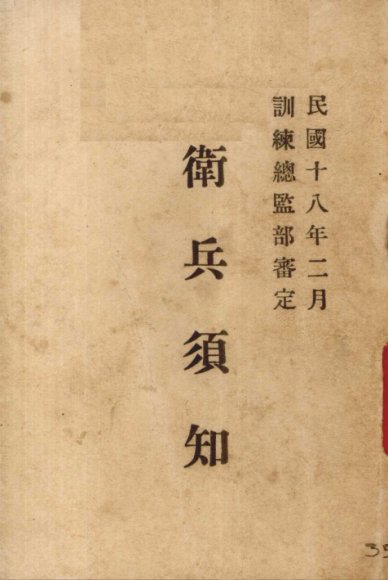 民國十八年二月
訓練總監部審定
衛兵須知